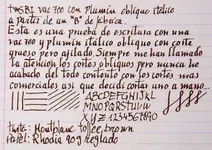 TWSBI vac 700 con plumín oblicuo itálico
a partir de un "B" de fábrica.
Esta es una prueba de escritura con una
vac 700 y plumín itálico oblicuo con corte
grueso pero afilado. Siempre me han llamado
la atención los cortes oblicuos pero nunca he
acabado del todo contento con los cortes más
comerciales así que decidí cortar uno a mano.
ABCDEFGHIJKL
MNOPQRSTUVW
XYZ 1234567890
Tinta: Montblanc toffee brown
Papel: Rhodia 90g reglado